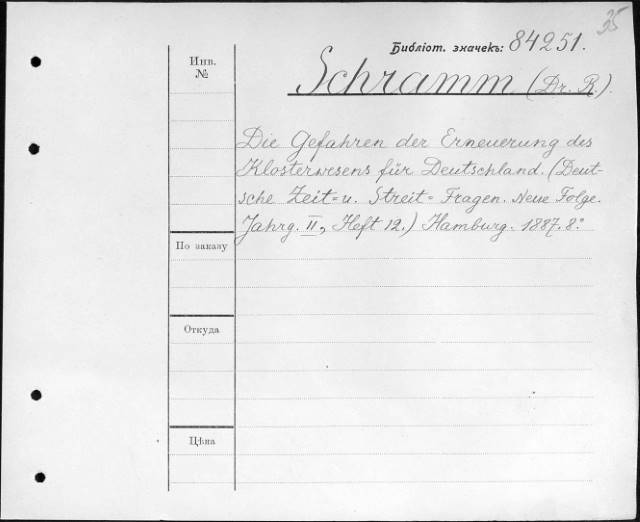 35
Библіот. значекъ: 84251.
Инв.
№
Schramm (Dr. R.).
Die Gefahren der Erneuerung des
Klosterwesens für Deutschland. (Deut-
sche Zeit= u. Streit= Fragen. Neue Folge.
Jahrg. II, Heft 12.) Hamburg. 1887. 8º
По заказу
Откуда
Цѣна